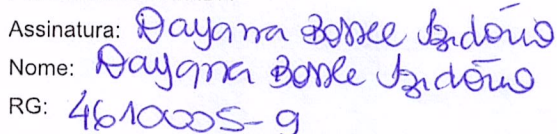 Assinatura: Dayana Bossle Isidório
Nome: Dayana Bossle Isidório
RG: 4610005-9